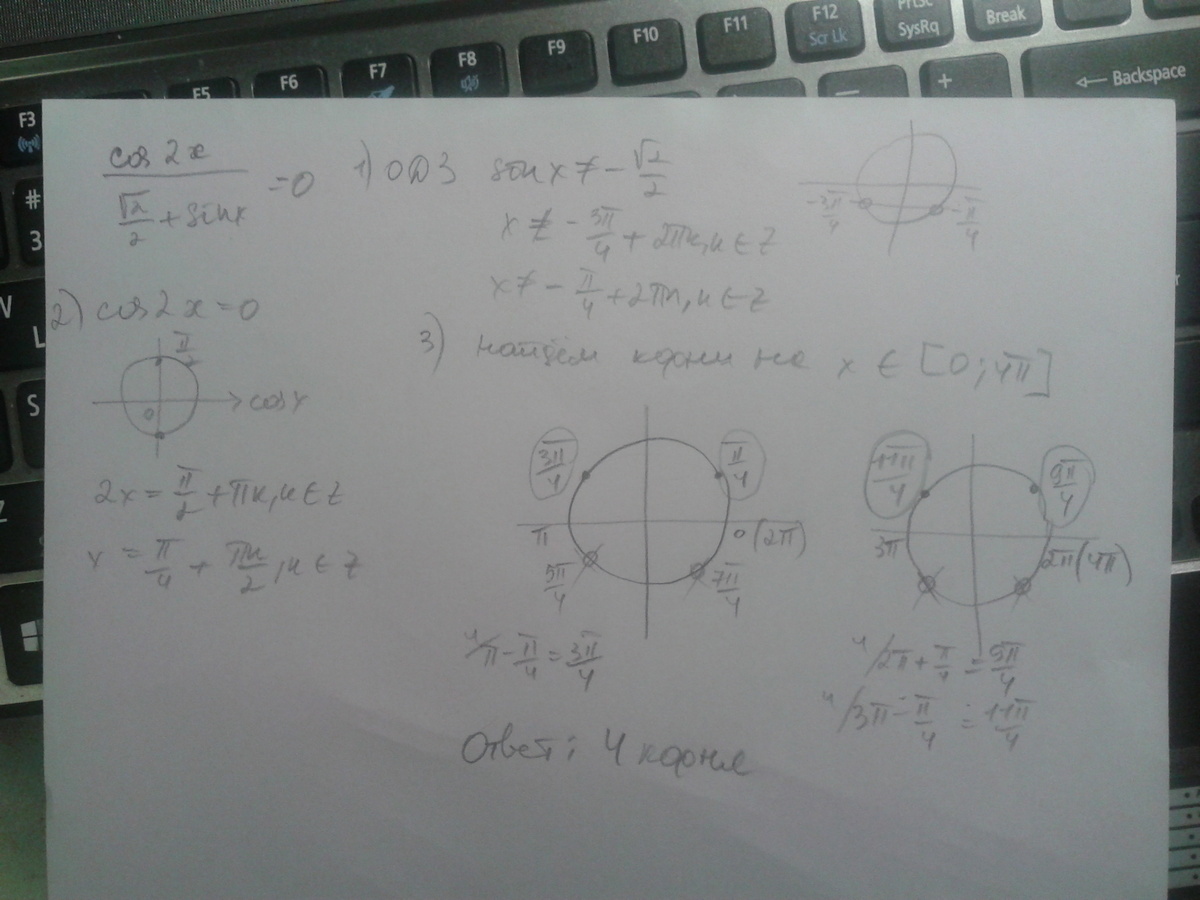 F3
F5
F6
F7
F8
F9
F10
F11
F12
Scr Lk
PrtSc
SysRq
Break
#
3
+
Backspace
cos 2x / (√2/2 + sinx) = 0
1) ОДЗ sin x ≠ -√2/2
x ≠ -3π/4 + 2πk, k ∈ Z
x ≠ -π/4 + 2πk, k ∈ Z
-3π/4
-π/4
2) cos 2x = 0
π/2
0
cos x
2x = π/2 + πk, k ∈ Z
x = π/4 + πk/2, k ∈ Z
3) найдём корни на x ∈ [0; 4π]
3π/4
π/4
π
0 (2π)
5π/4
7π/4
4/π - π/4 = 3π/4
11π/4
9π/4
3π
2π (4π)
4/2π + π/4 = 9π/4
4/3π - π/4 = 11π/4
Ответ: 4 корня